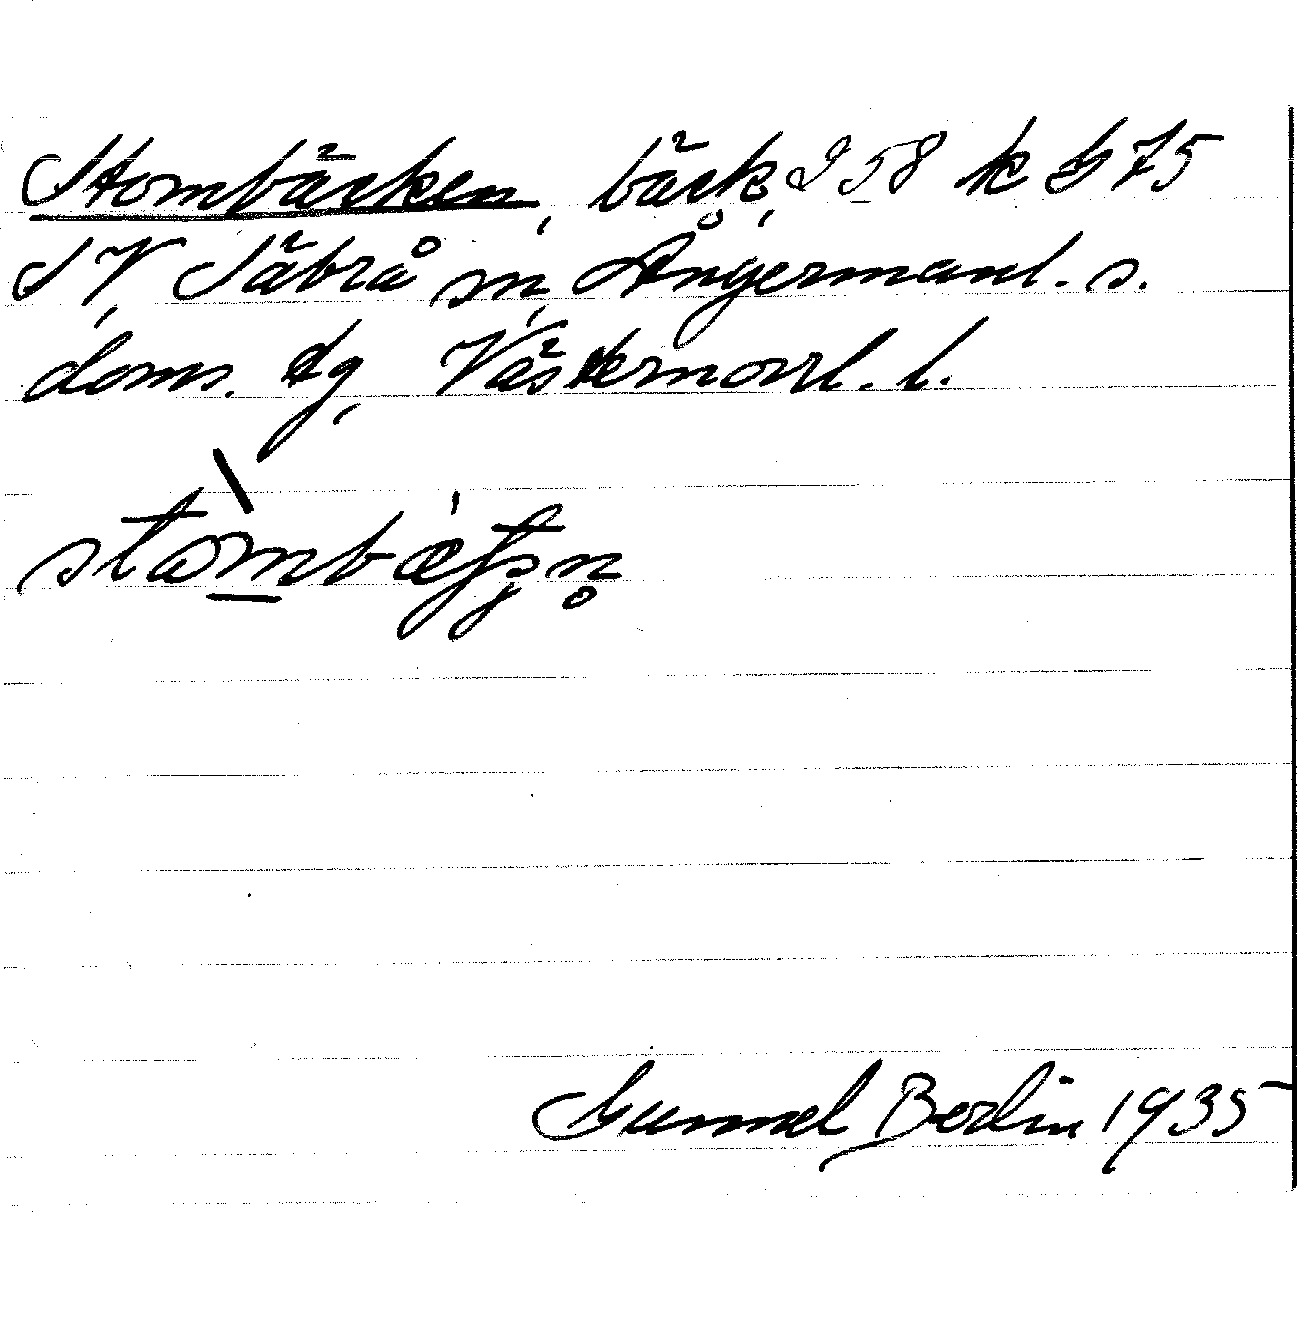 Stombäcken, bäck, 258 k G 75
SV, Säbrå sn, Ångermanl. s.
doms. tg, Västernorrl. l.
Gunnel Berlin 1935